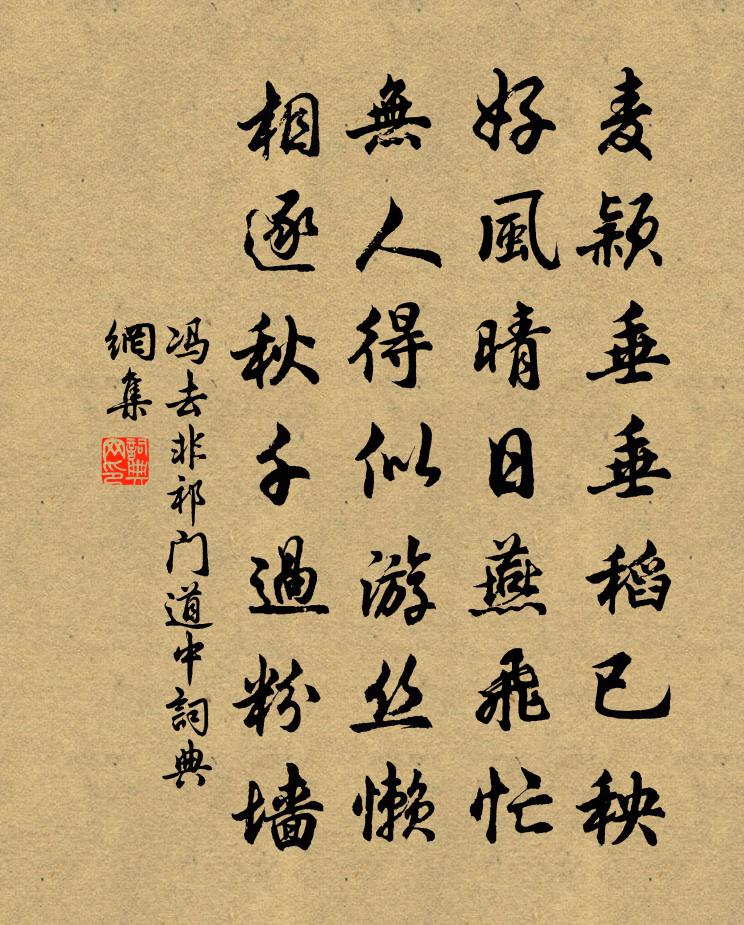 麦颖垂垂稻已秧
好風晴日燕飛忙
無人得似游丝懒
相逐秋千過粉墙
冯去非祁门道中詞典
網集
詞典网印